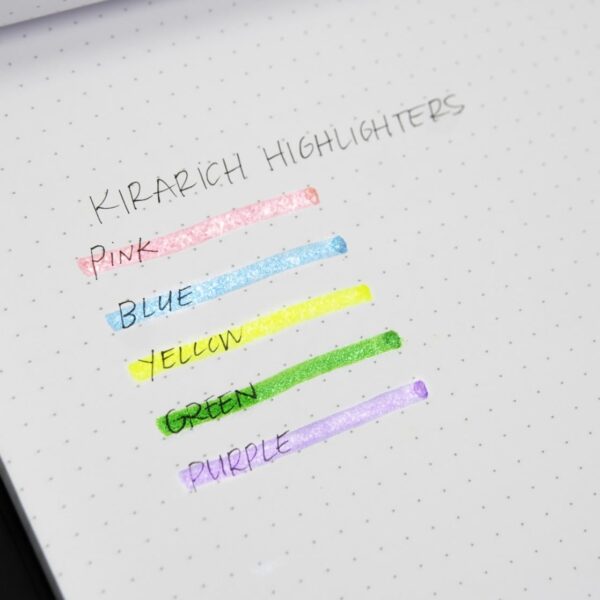 KIRARICH HIGHLIGHTERS
PINK
BLUE
YELLOW
GREEN
PURPLE